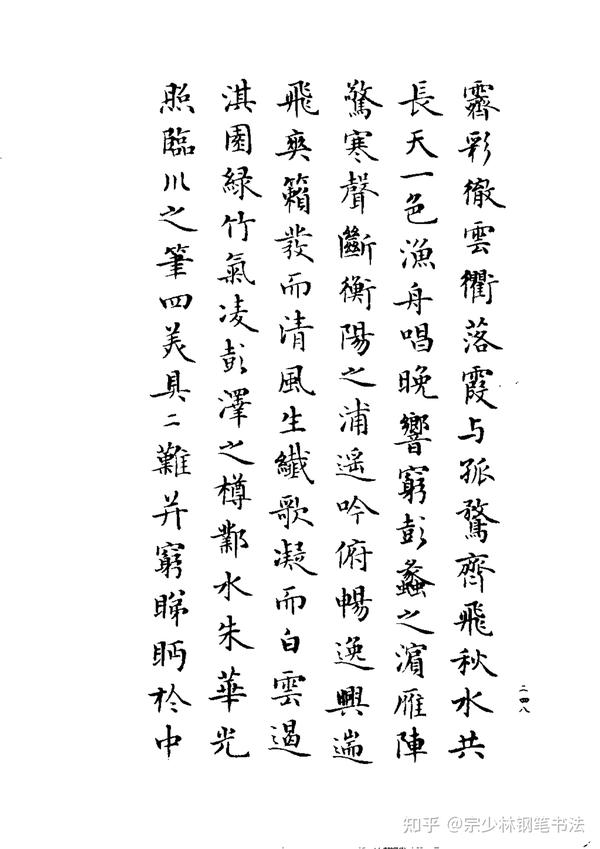 霽彩徹雲衢落霞与孤鶩齊飛秋水共
長天一色漁舟唱晚響窮彭蠡之濱雁陣
驚寒聲斷衡陽之浦遥吟俯暢逸興遄
飛爽籟發而清風生纖歌凝而白雲遏
淇園緑竹氣凌彭澤之樽鄴水朱華光
照臨川之筆四美具二難并窮睇眄於中
二四八
知乎 @宗少林钢笔书法